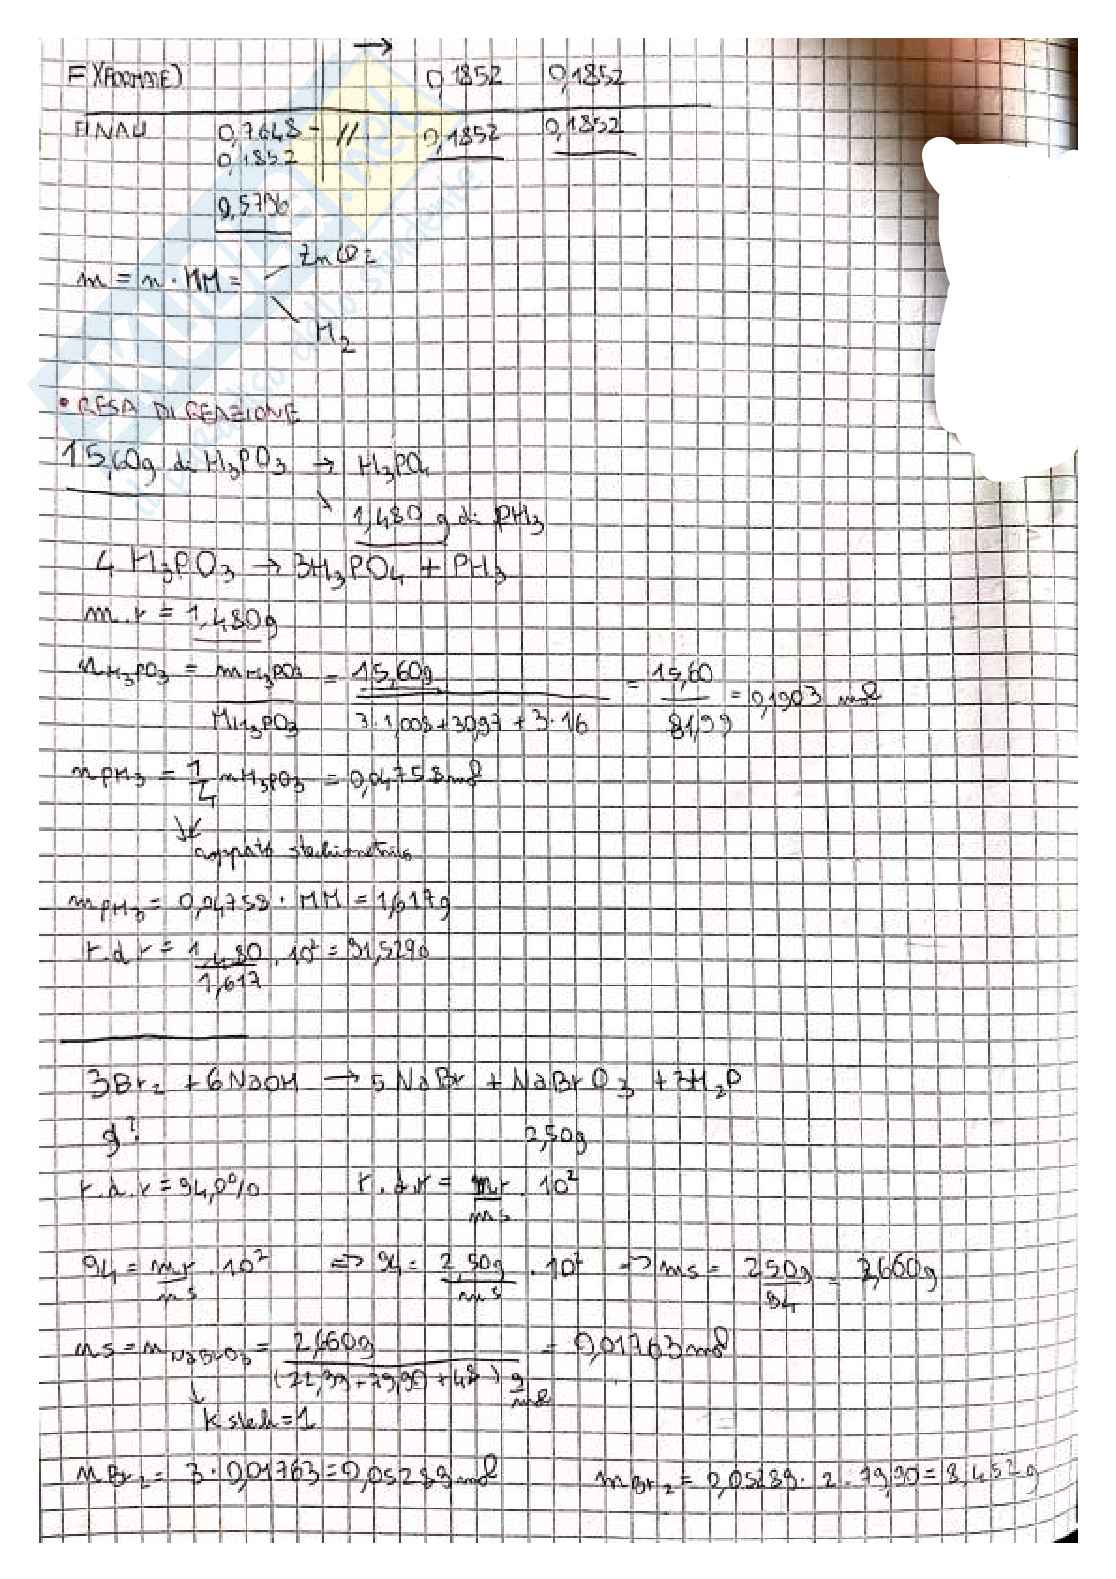 F(FORMATE) 0,1852 0,1852
FINALI 0,7648 - // 0,1852 0,1852
0,1852
0,5796
ZnCl2
m = n · MM =
H2
• RESA DI REAZIONE
15,60g di H3PO3 → H3PO4
1,480 g di PH3
4 H3PO3 → 3H3PO4 + PH3
m.r = 1,480g
nH3PO3 = mH3PO3 = 15,60g = 15,60 = 0,1903 mol
MH3PO3 3·1,008+30,97+3·16 81,99
nPH3 = 1/4 nH3PO3 = 0,04758 mol
rapporto stechiometrico
mPH3 = 0,04758 · MM = 1,617g
r.d.r = 1,480 · 10² = 91,52%
1,617
3Br2 + 6NaOH → 5 NaBr + NaBrO3 + 3H2O
g? 2,50g
r.d.r = 94,0% r.d.r = mr · 10²
ms
94 = mr · 10² => 94 = 2,50g · 10² => ms = 250g = 2,660g
ms ms 94
ns = nNaBrO3 = 2,660g = 0,01763 mol
(22,99+79,90+48) g
mol
K stech = 1
nBr2 = 3 · 0,01763 = 0,05289 mol mBr2 = 0,05289 · 2 · 79,90 = 8,452g